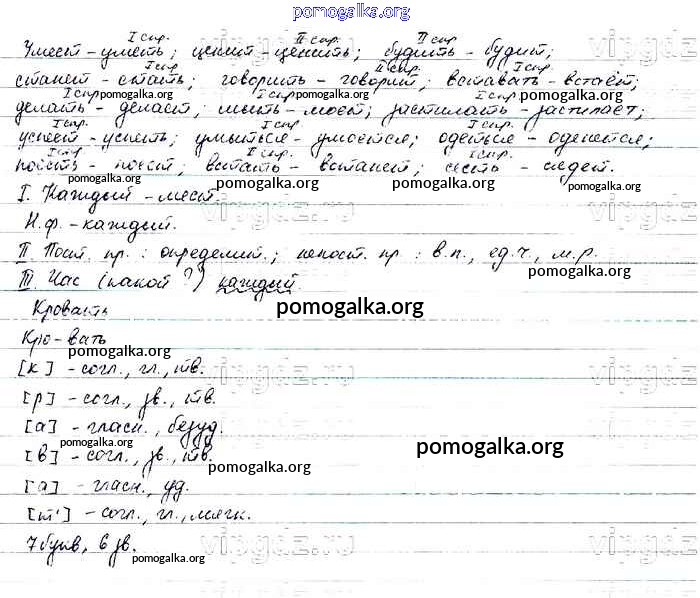 pomogalka.org
I спр. II спр. II спр.
Умеет - уметь; ценит - ценить; будить - будит;
I спр. II спр. I спр.
станет - стать; говорить - говорит; вставать - встаёт;
I спр pomogalka.org I спр pomogalka.org I спр pomogalka.org
делать - делает, мыть - моет; застилать застилает;
I спр. I спр. I спр.
успеет - успеть; умыться - умоется; одеться - оденется;
I спр I спр. I спр.
поесть - поест; встать - встанет; сесть - сядет.
pomogalka.org pomogalka.org pomogalka.org
I. Каждый - мест.
Н.ф. - каждый.
II. Пост. пр.: определит.; непост. пр: в.п., ед.ч., м.р.
pomogalka.org
III Час (какой?) каждый.
Кровать pomogalka.org
Кро-вать
pomogalka.org
[к] - согл., гл., тв.
[р] - согл., зв., тв.
[а] - гласн., безуд.
pomogalka.org pomogalka.org
[в] - согл., зв., тв.
pomogalka.org
[а] - гласн., уд.
[т'] - согл., гл., мягк.
7 букв, 6 зв.
pomogalka.org
vipgdz.ru